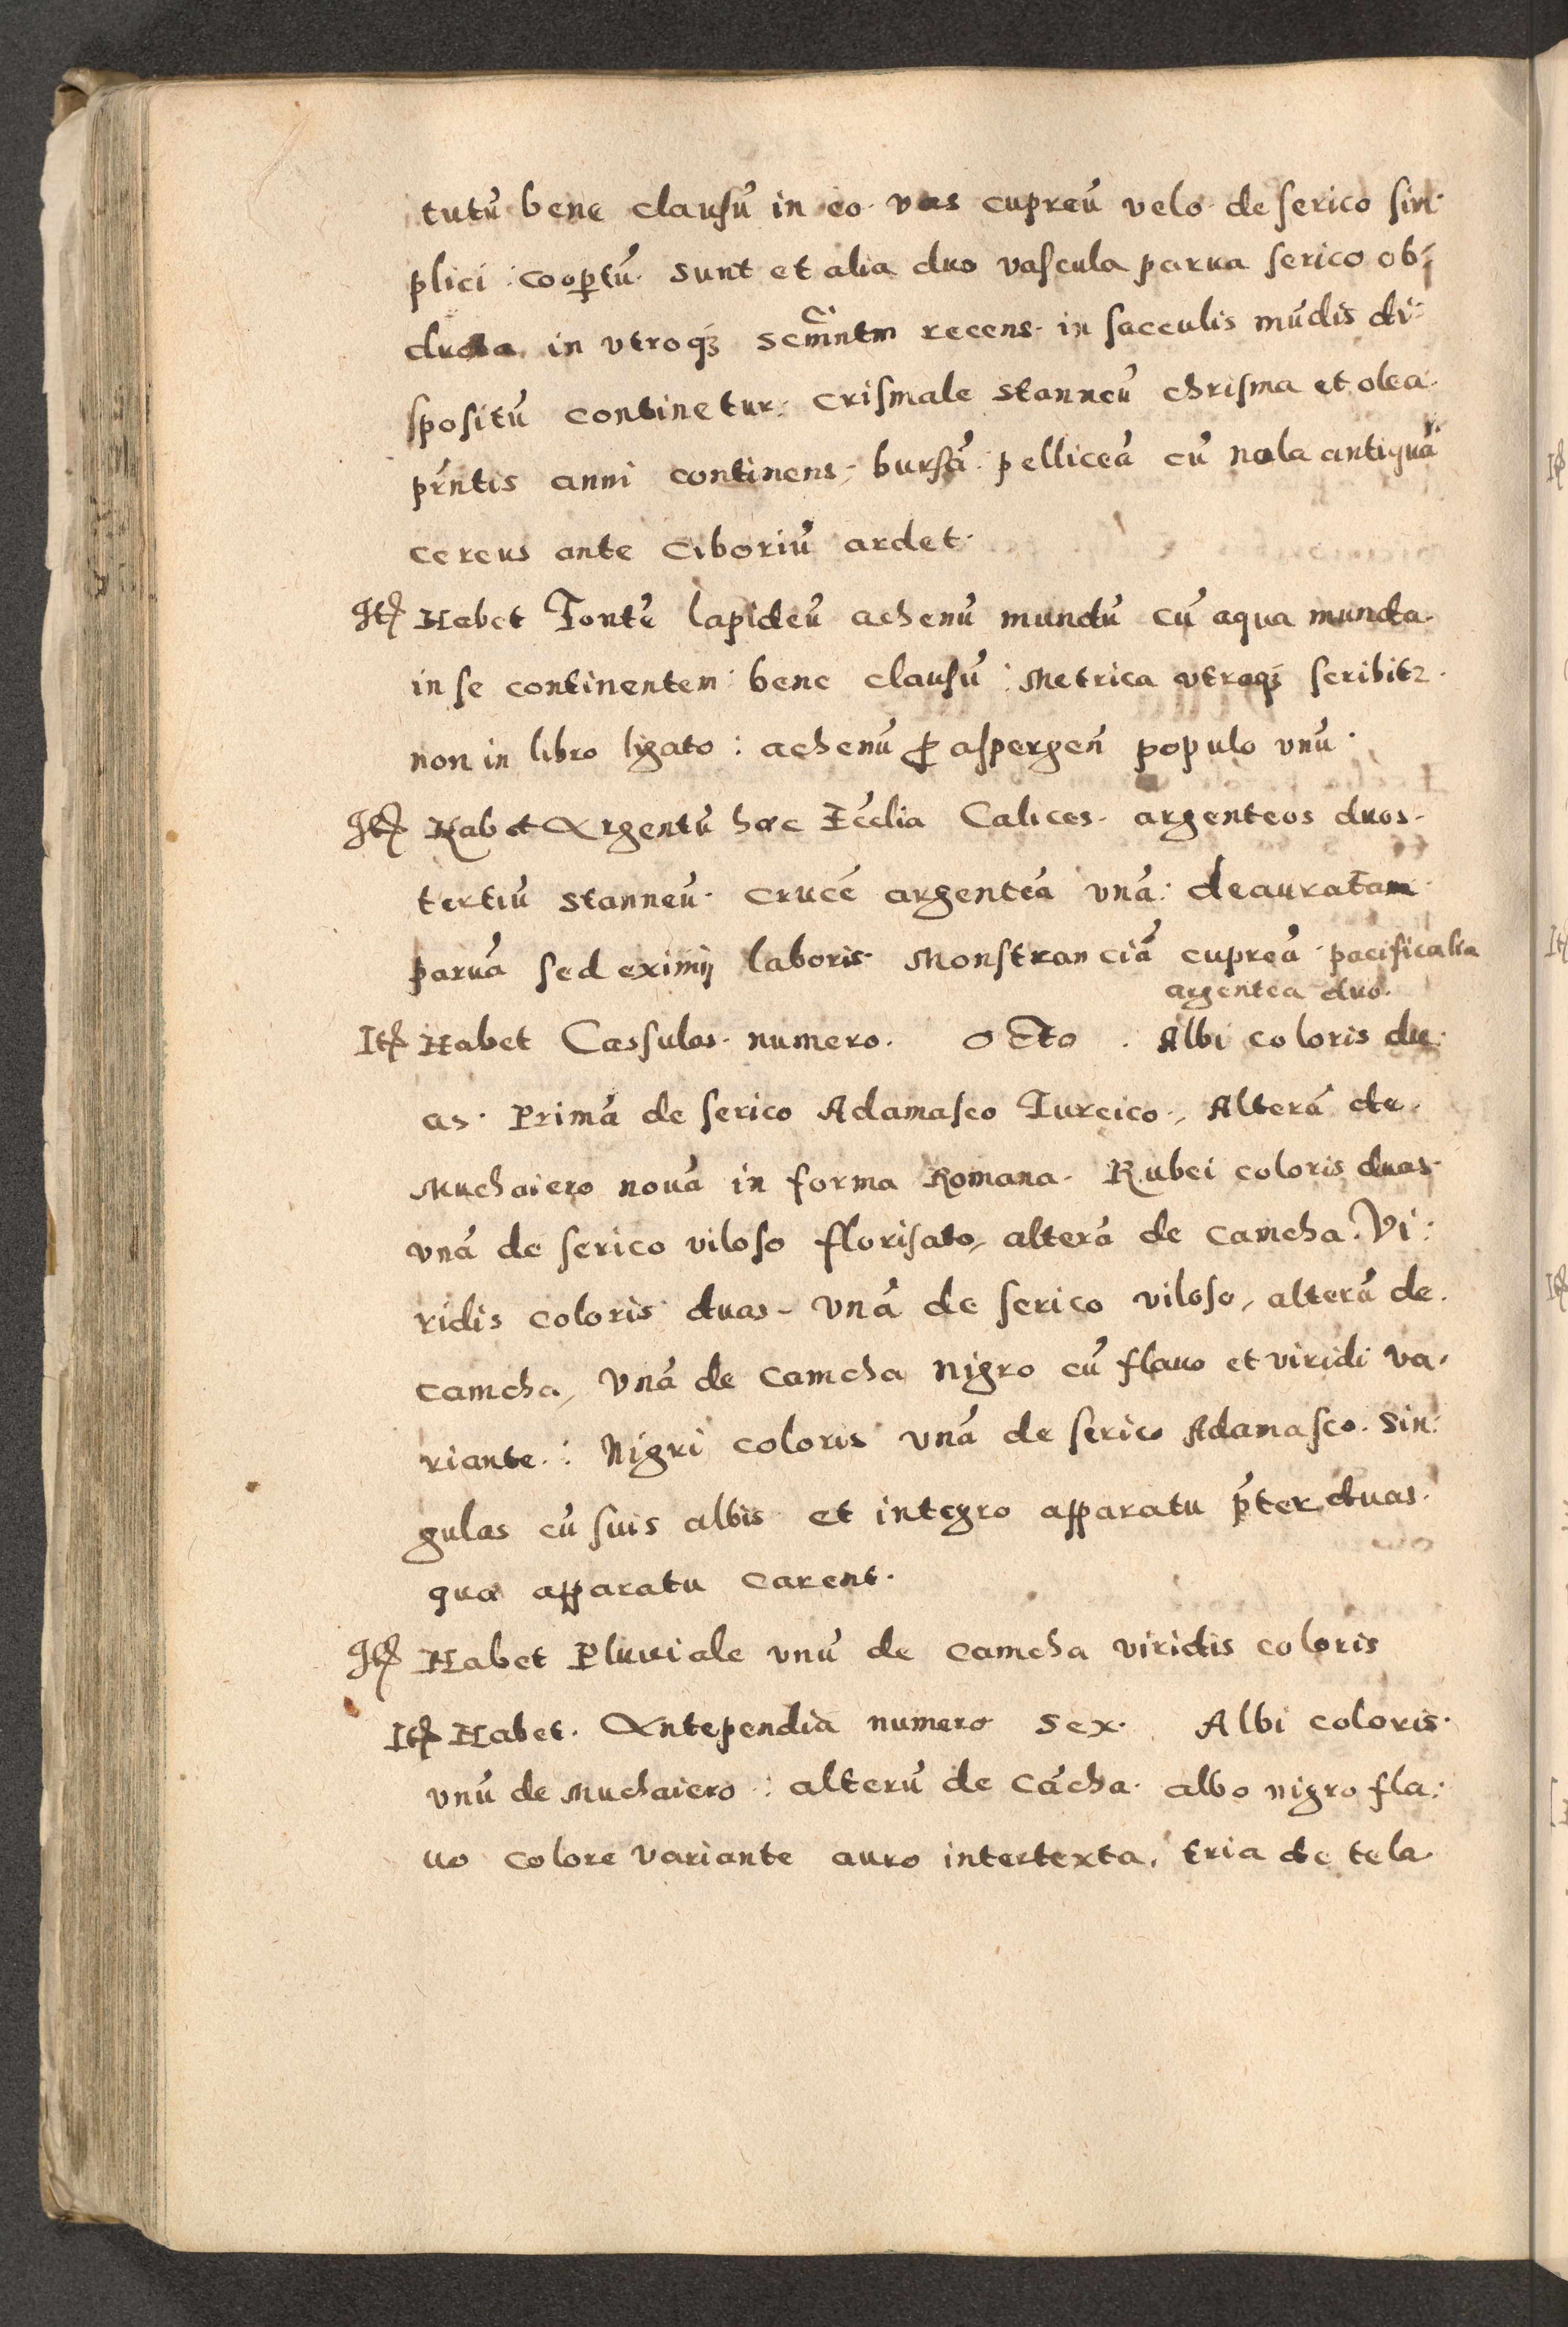 tutū bene clausū in eo vas cupreū velo de serico sim
plici coop̱tū. sunt et alia duo vascula parua serico ob
ducta in vtroq₃ scm̄ntm recens. in sacculis mūdis di
spositū continetur. crismale stanneū chrisma et olea
pr̄ntis anni continens, bursā pelliceā cū nola antiquā
cereus ante Ciboriū ardet.
Itꝭ Habet Fontē lapideū achenū mundū cū aqua munda
in se continentem bene clausū: Metrica vtraq₃ scribitꝛ
non in libro ligato: achenū ꝑ aspergeñ populo vnū.
Itꝭ Habet Argentū haec Eccl̄ia Calices argenteos duos
tertiū stanneū. crucē argenteā vnā: deauratam
paruā sed eximij laboris Monstranciā cupreā pacificalia
argentea duo.
Itꝭ Habet Cassulas numero. octo. Albi coloris du
as. Primā de serico Adamasco Turcico, Alterā de
Muchaiero nouā in forma Romana. Rubei coloris duas
vnā de serico viloso florisato, alterā de camcha. Vi:
ridis coloris duas, vnā de serico viloso, alterā de
camcha, Vnā de camcha nigro cū flauo et viridi va
riante.: Nigri coloris vnā de serico Adamasco. Sin:
gulas cū suis albis et integro apparatu p̄ter duas
qua apparatu carent.
Itꝭ Habet Pluuiale vnū de camcha viridis coloris
Itꝭ Habet. Antependia numero sex. Albi coloris
vnū de Muchaiero: alterū de cācha albo nigro fla:
uo colore variante auro intertexta, tria de tela